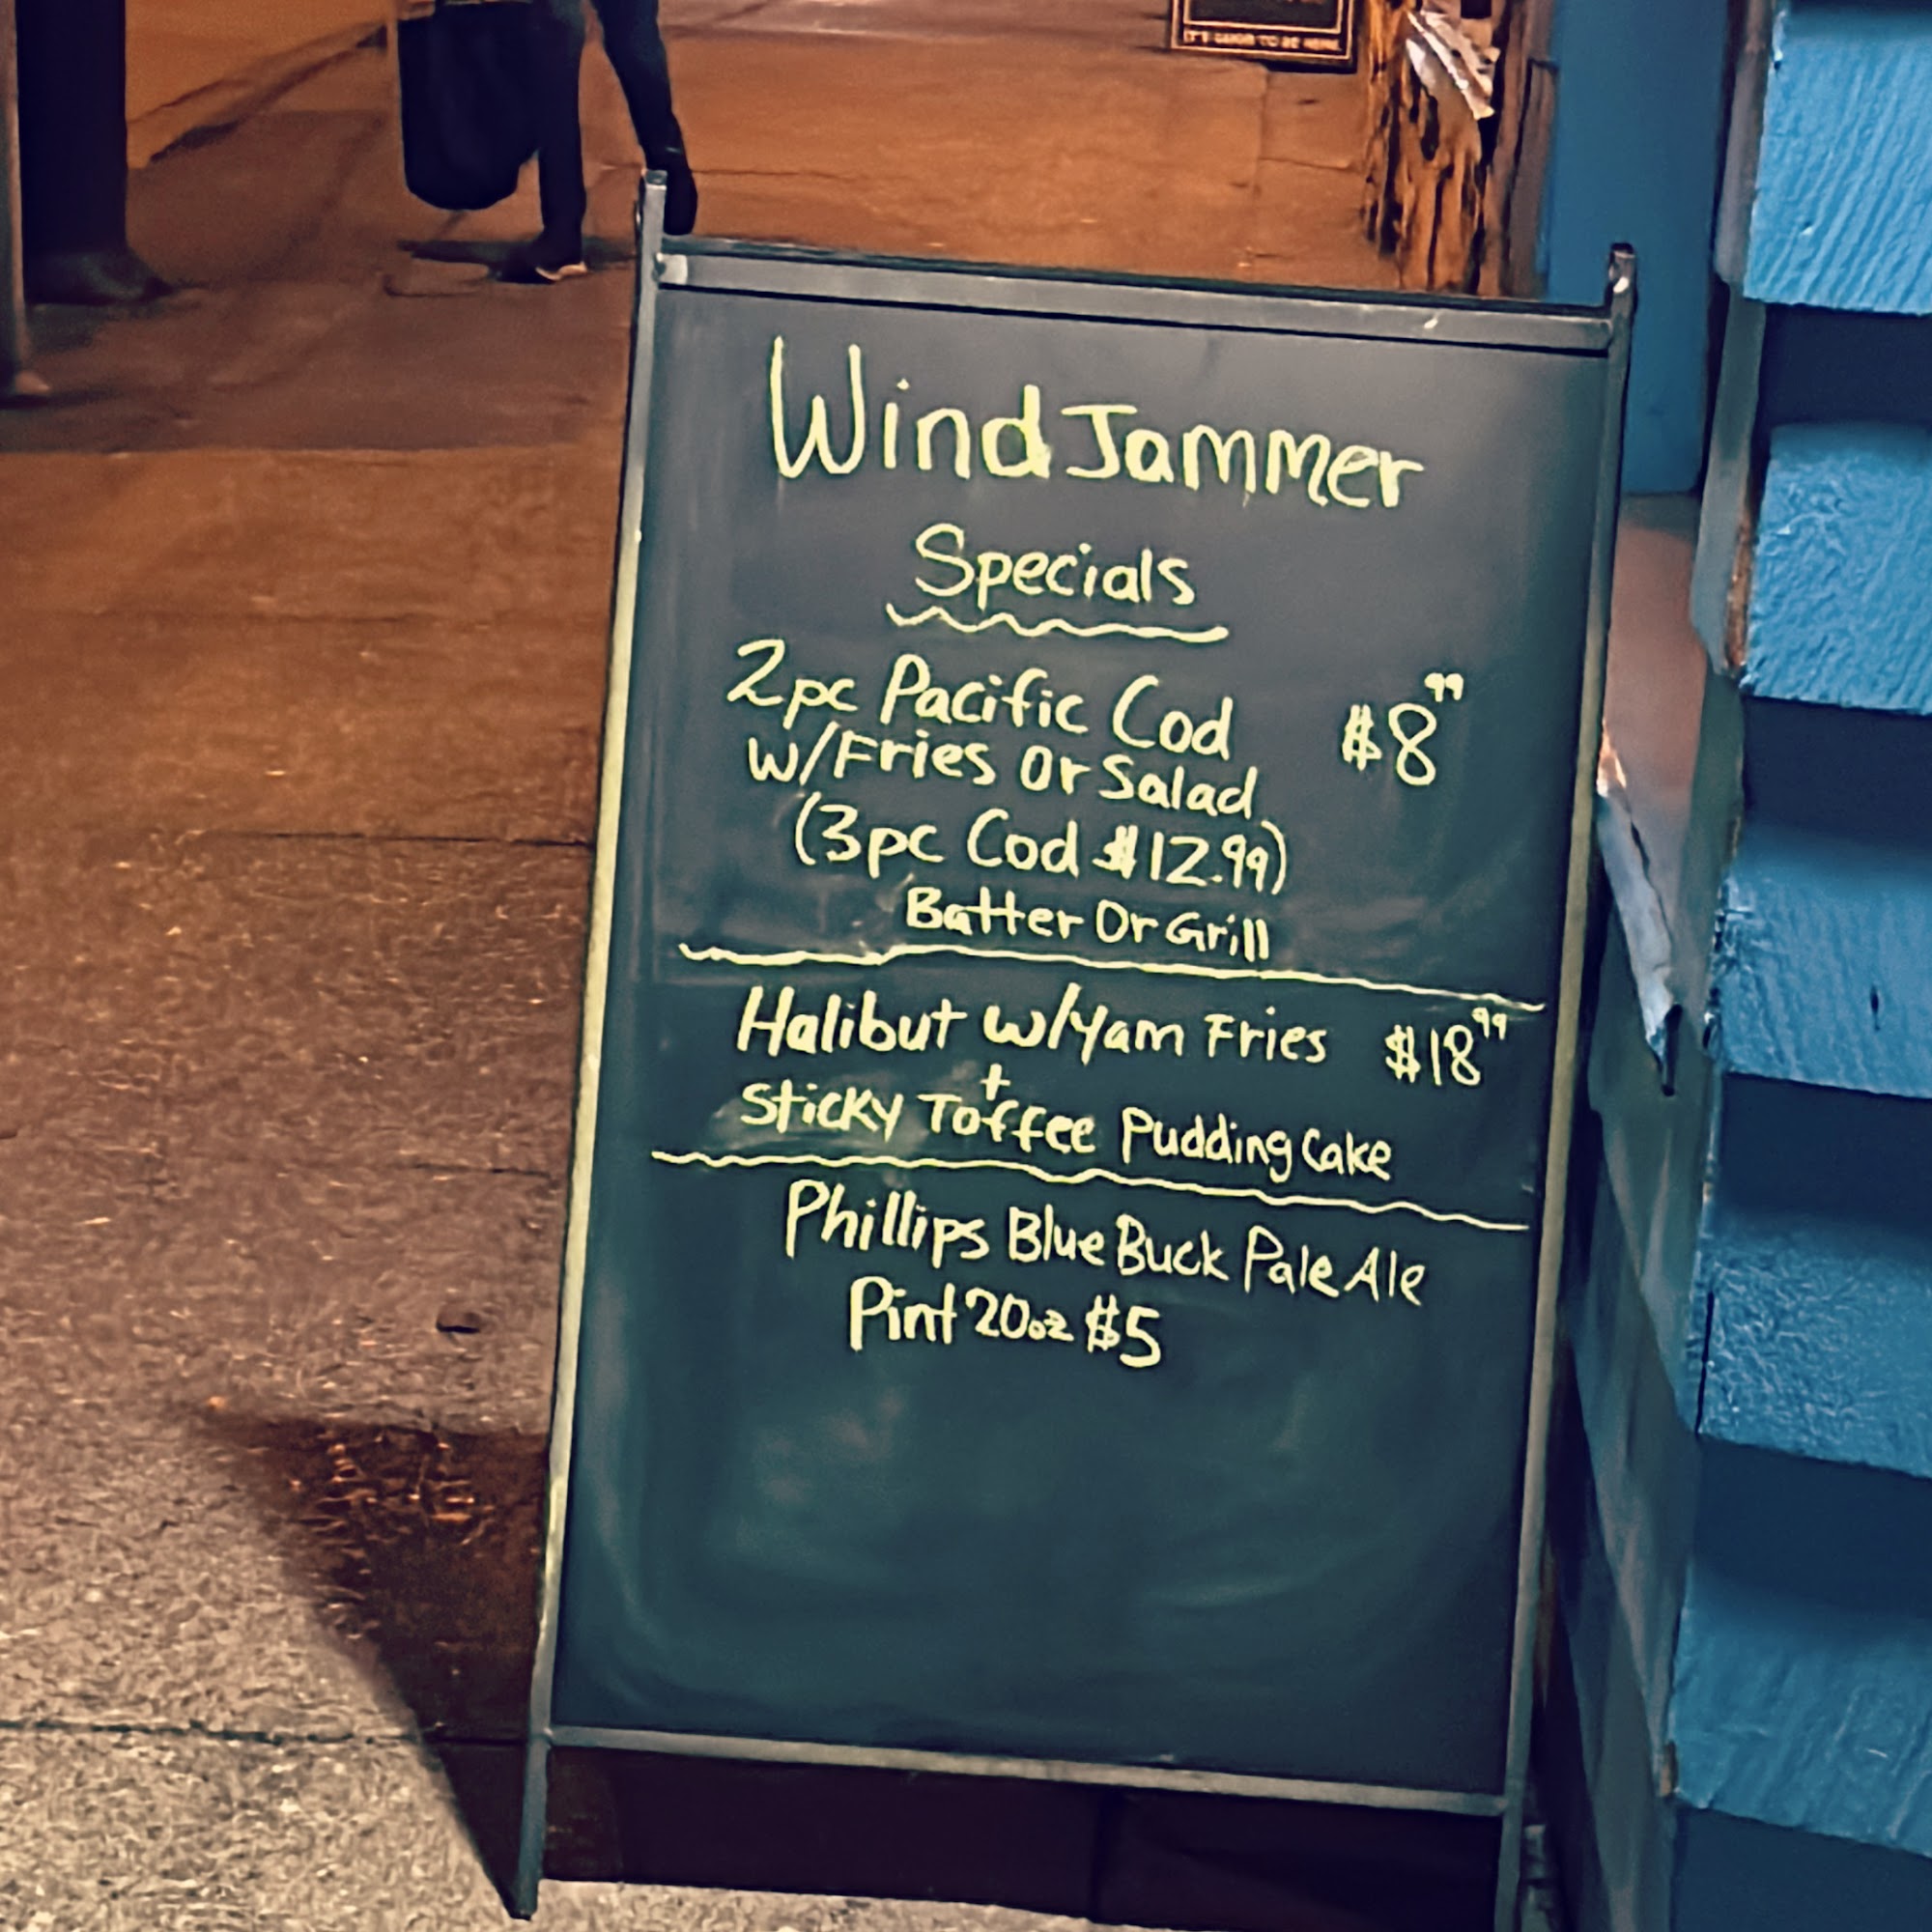 IT'S GOOD TO BE HERE
Wind Jammer
Specials
2pc Pacific Cod $8⁹⁹
w/Fries Or Salad
(3pc Cod $12.99)
Batter Or Grill
Halibut w/Yam Fries $18⁹⁹
+
Sticky Toffee Pudding Cake
Phillips Blue Buck Pale Ale
Pint 20oz $5